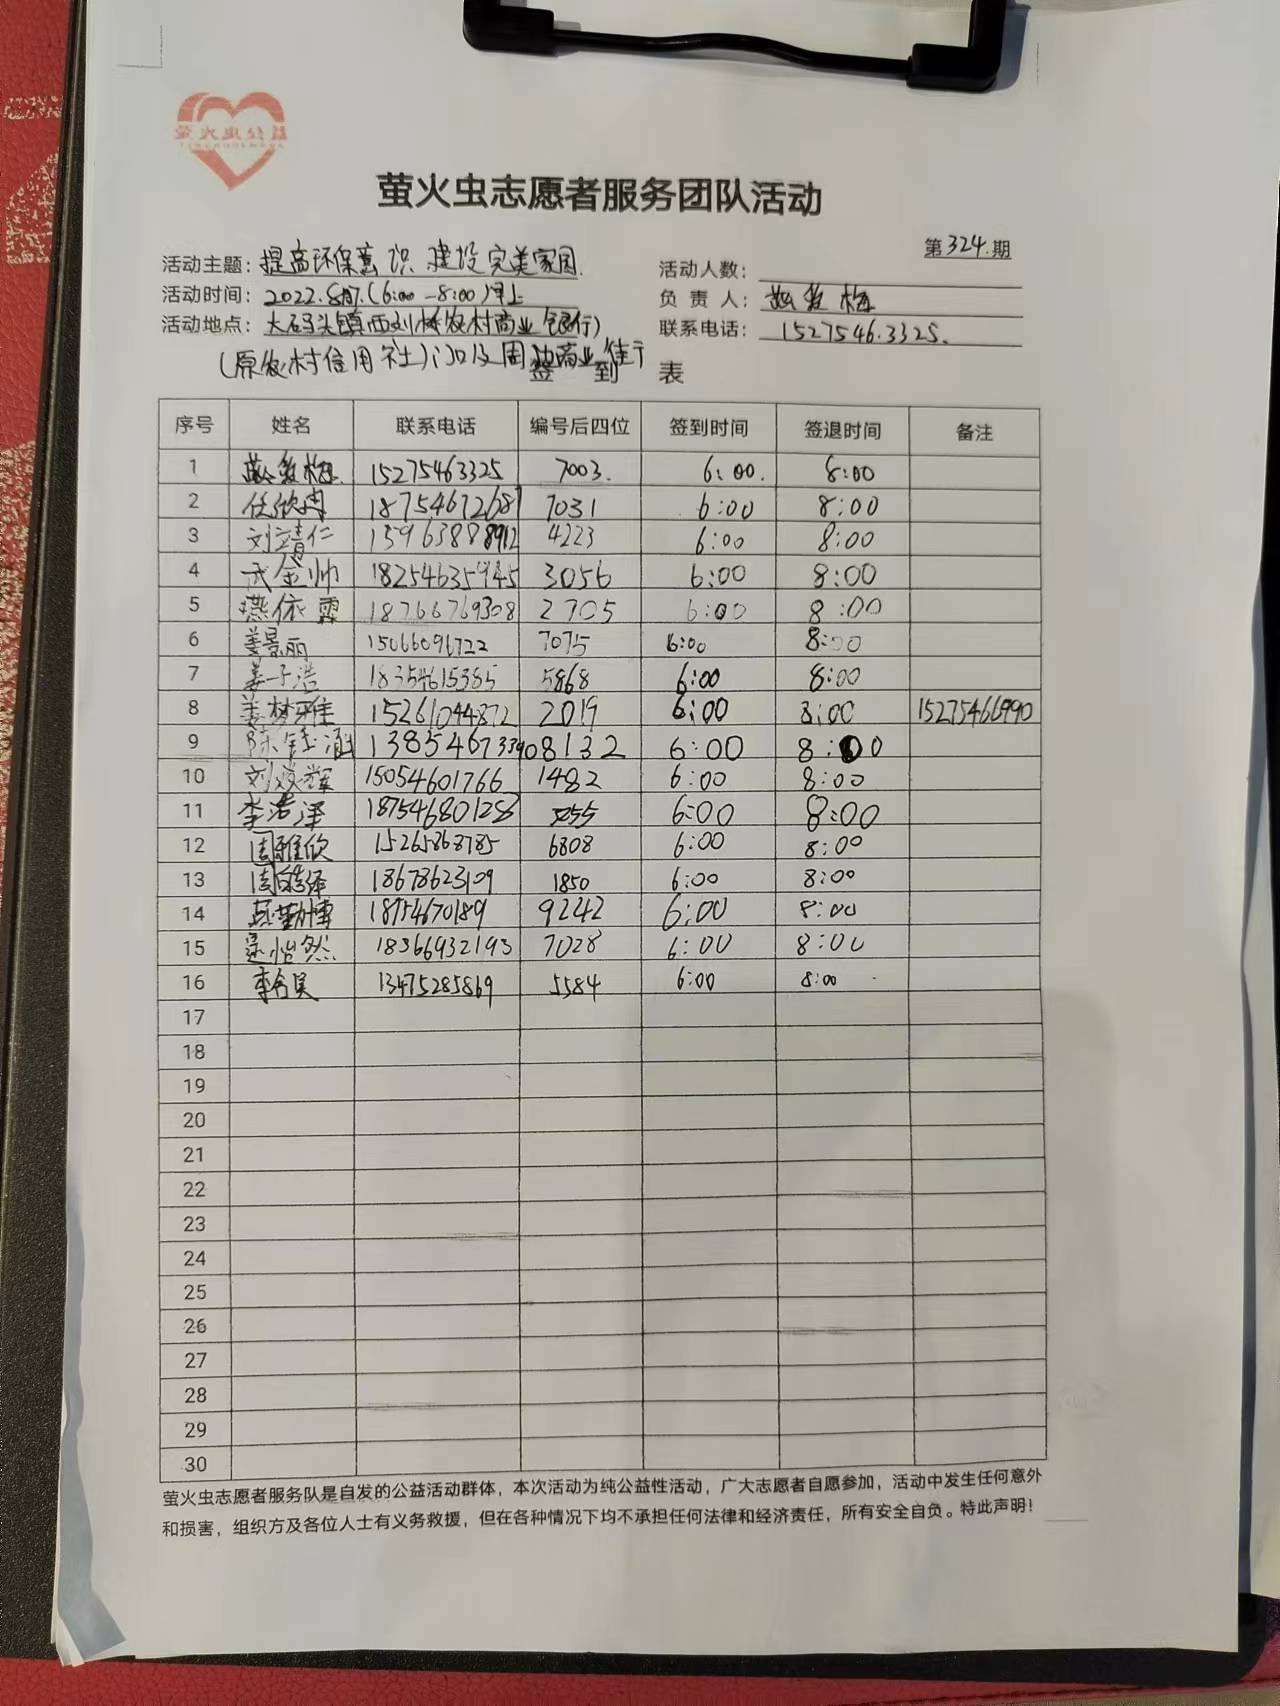 萤火虫公益
萤火虫志愿者服务团队活动
第324.期
活动主题：提高环保意识 建设完美家园.
活动人数：
活动时间：2022.8月7.(6:00-8:00)早上
负责人：
活动地点：大码头镇西刘桥农村商业银行)
联系电话：15275463325.
(原农村信用社)门口及周边商业街于
签到表
序号 姓名 联系电话 编号后四位 签到时间 签退时间 备注
1 15275463325 7003. 6:00. 8:00
2 任欣冉 18754672687 7031 6:00 8:00
3 刘靖仁 15963888912 4223 6:00 8:00
4 武金帅 18254635945 3056 6:00 8:00
5 燕依霖 18766769308 2705 6:00 8:00
6 姜景丽 15066096722 7075 6:00 8:00
7 姜子浩 18354615385 5868 6:00 8:00
8 姜梦雅 15261044872 2019 6:00 8:00 15275466990
9 陈钰涵 13854673390 8132 6:00 8:00
10 15054601766 1482 6:00 8:00
11 李浩泽 18754680128 6:00 8:00
12 周雅欣 15265868785 6808 6:00 8:00
13 18678623109 1850 6:00 8:00
14 18754670189 9242 6:00 8:00
15 怡然 18366932193 7028 6:00 8:00
16 13475285869 5584 6:00 8:00
17
18
19
20
21
22
23
24
25
26
27
28
29
30
萤火虫志愿者服务队是自发的公益活动群体，本次活动为纯公益性活动，广大志愿者自愿参加，活动中发生任何意外
和损害，组织方及各位人士有义务救援，但在各种情况下均不承担任何法律和经济责任，所有安全自负。特此声明！